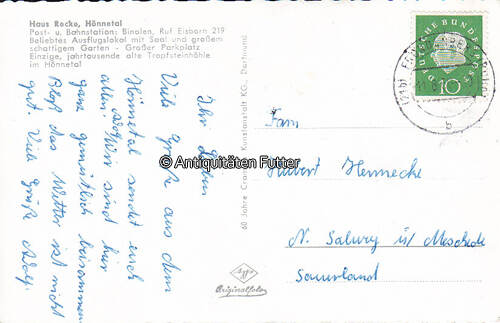 Haus Recke, Hönnetal
Post- u. Bahnstation: Binolen, Ruf Eisborn 219
Beliebtes Ausflugslokal mit Saal und großem
schattigem Garten - Großer Parkplatz
Einzige, jahrtausende alte Tropfsteinhöhle
im Hönnetal
Ihr Lieben
Viele Grüße aus dem
Hönnetal sendet euch
allen Adolf. Wir sind hier
ganz gemütlich beisammen
Bloß das Wetter ist nicht
gut. Viele Grüße Adolf.
60 Jahre Cramers Kunstanstalt KG., Dortmund
© Antiquitäten Futter
Agfa
Originalfoto
DEUTSCHE BUNDESPOST
10
b
Fam
Hubert Hennecke
N. Salwey i/ Meschede
Sauerland